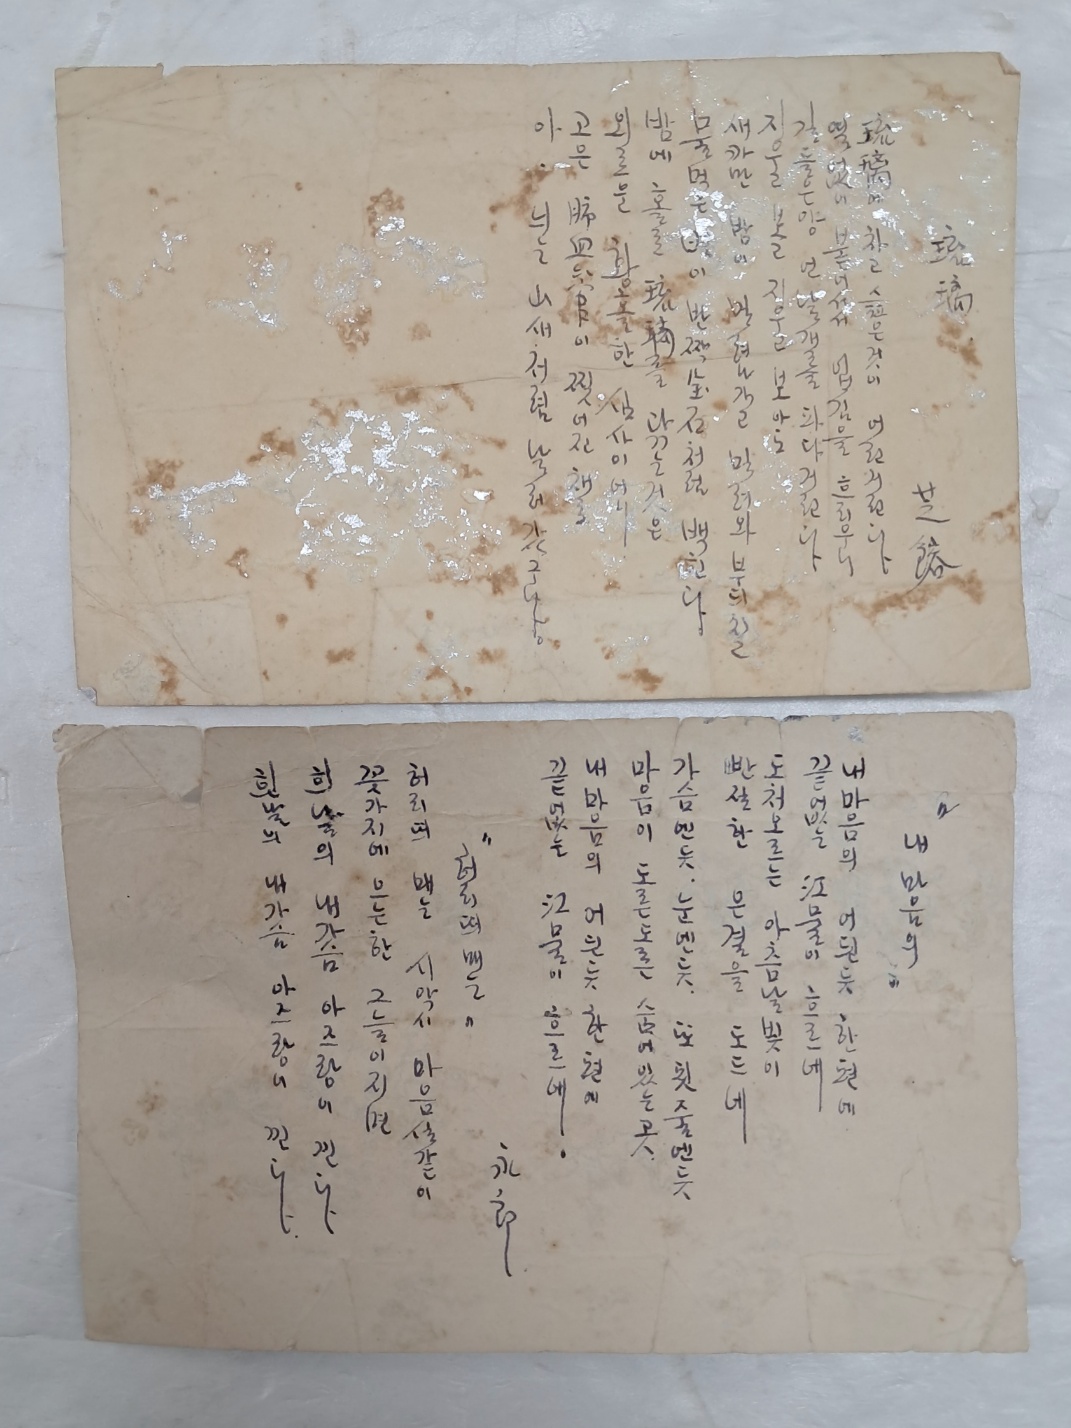 琉璃.
芝鎔
琉璃에 차고 슬픈것이 어린거린다
열없이 붙어서서 입김을 흐리우니
길들은양 언 날개를 파다거린다
지우고 보고 지우고 보아도
새까만 밤이 밀려나가고 밀려와 부디칠
물먹은 별이 반짝 宝石처럼 백힌다
밤에 홀로 琉璃를 닥는것은
외로운 황홀한 심사이어니
고은 肺血管이 찢어진채로
아. 늬는 山새처럼 날러갔구나.
"내 마음의"
내 마음의 어딘듯 한편에
끝없는 江물이 흐르네
도처오르는 아츰날빛이
빤질한 은결을 도드네
가슴엔듯. 눈엔듯. 또 핏줄엔듯
마음이 도른도른 숨어있는곳.
내 마음의 어딘듯 한편에
끝없는 江물이 흐르네.
永郎
"허리띄 매는"
허리띄 매는 시악시 마음실같이
꽃가지에 은은한 그늘이지면
힌날의 내가슴 아즈랑이 낀다
힌날의 내가슴 아즈랑이 낀다.